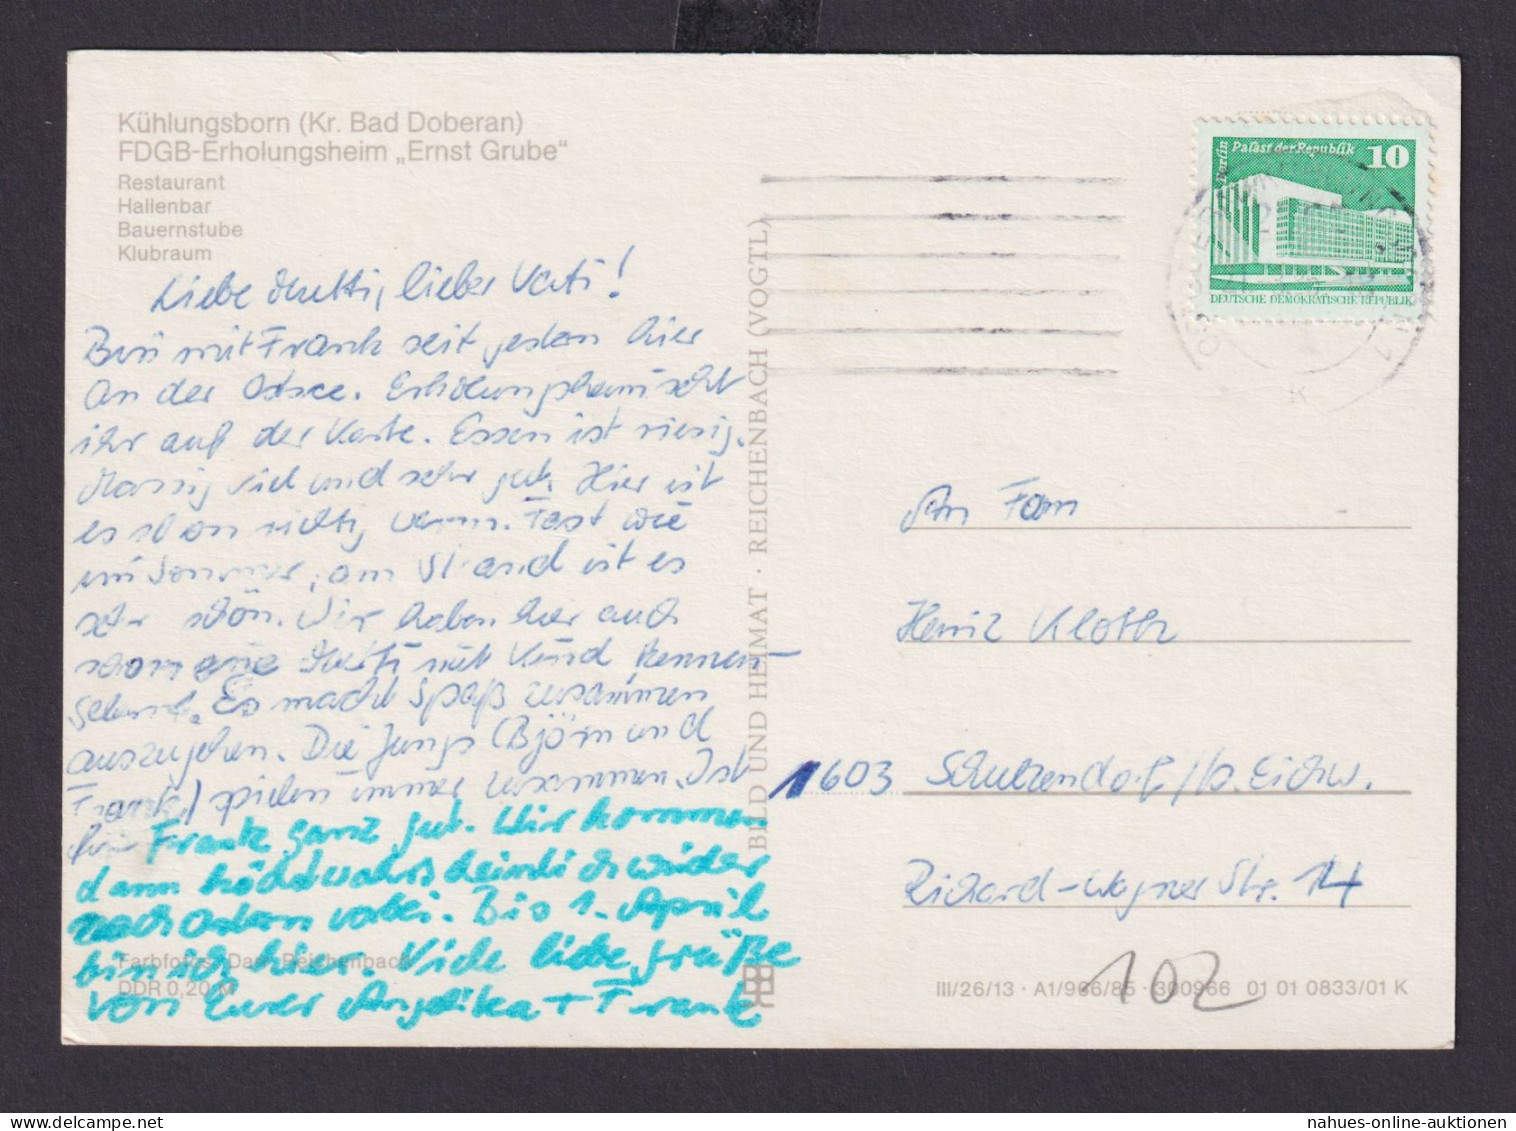 Kühlungsborn (Kr. Bad Doberan)
FDGB-Erholungsheim „Ernst Grube“
Restaurant
Hallenbar
Bauernstube
Klubraum
Liebe Mutti, lieber Vati!
Bin mit Frank seit gestern hier
an der Ostsee. Erholungsheim seht
ihr auf der Karte. Essen ist riesig.
Massig viel und sehr gut. Hier ist
es schon richtig warm. Fast wie
im Sommer, am Strand ist es
sehr schön. Wir haben hier auch
schon eine Mutti mit Kind kennen-
gelernt. Es macht Spaß zusammen
auszugehen. Die Jungs (Björn und
Frank) spielen immer zusammen. Ist
für Frank ganz gut. Wir kommen
dann höchstwahrscheinlich wieder
nach Ostern vorbei. Bis 1. April
bin ich hier. Viele liebe Grüße
von Eurer Angelika + Frank
Farbfotos: Darr, Reichenbach
DDR 0,20 M
BILD UND HEIMAT · REICHENBACH (VOGTL)
Berlin Palast der Republik 10
DEUTSCHE DEMOKRATISCHE REPUBLIK
An Fam
Heinz Kloth
1603 Schulzendorf / b. Eichw.
Richard-Wagner Str. 14
III/26/13 · A1/966/85 · 300966 01 01 0833/01 K
102
nahues-online-auktionen